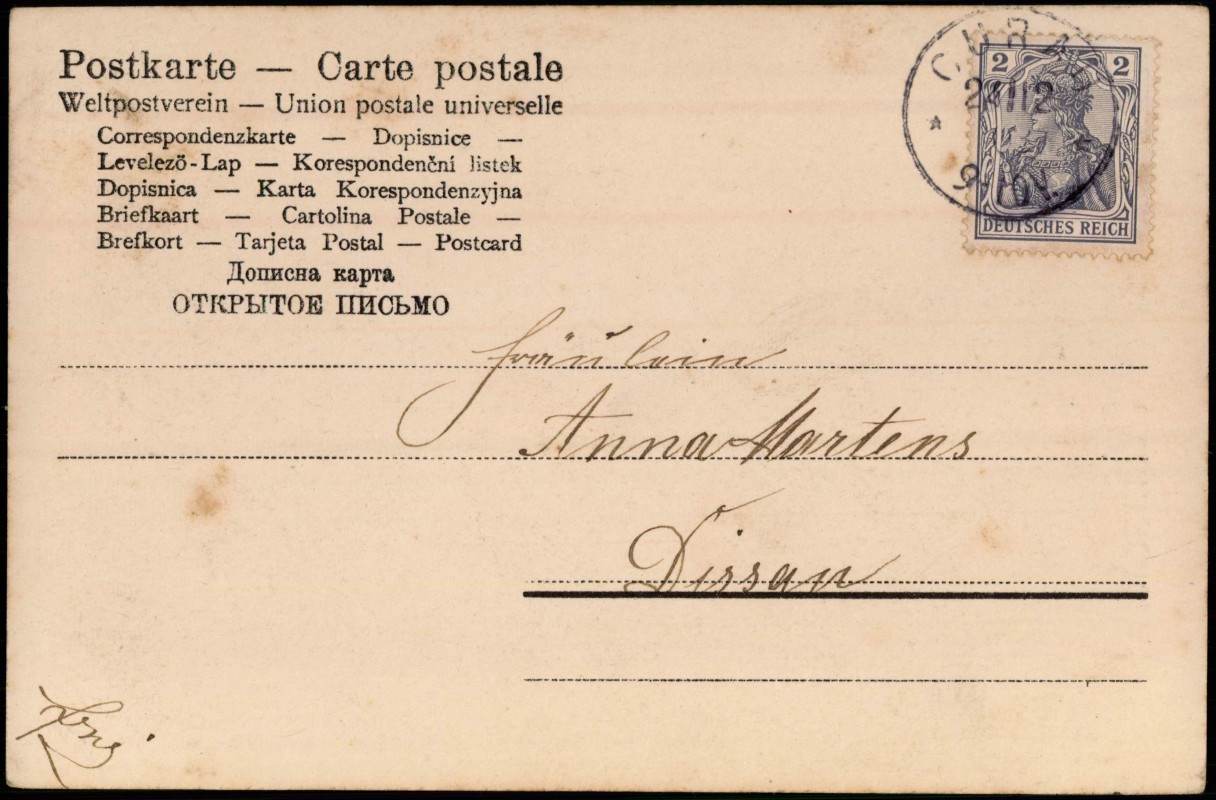 Postkarte — Carte postale
Weltpostverein — Union postale universelle
Correspondenzkarte — Dopisnice —
Levelező-Lap — Korespondenční listek
Dopisnica — Karta Korespondenzyjna
Briefkaart — Cartolina Postale —
Brefkort — Tarjeta Postal — Postcard
Дописна карта
ОТКРЫТОЕ ПИСЬМО
2 2
DEUTSCHES REICH
CURAU
Fräulein
Anna Martens
Dissau